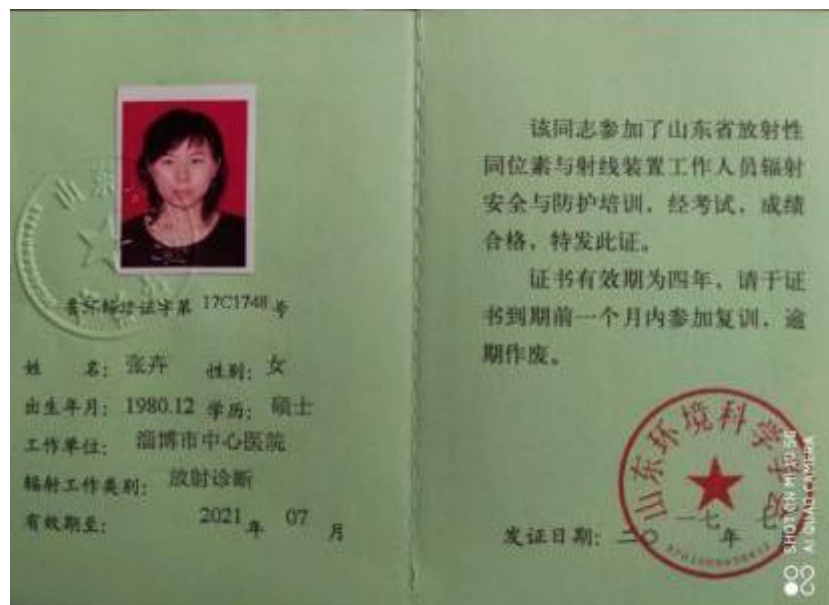 山东
鲁环辐培证字第 17C1748 号
姓 名: 张卉 性别: 女
出生年月: 1980.12 学历: 硕士
工作单位: 淄博市中心医院
辐射工作类别: 放射诊断
有效期至: 2021 年 07 月
该同志参加了山东省放射性
同位素与射线装置工作人员辐射
安全与防护培训，经考试，成绩
合格，特发此证。
证书有效期为四年，请于证
书到期前一个月内参加复训，逾
期作废。
山东环境科学学会
发证日期: 二〇一七年 七月
SHOT ON MI 9 SE
AI QUAD CAMERA